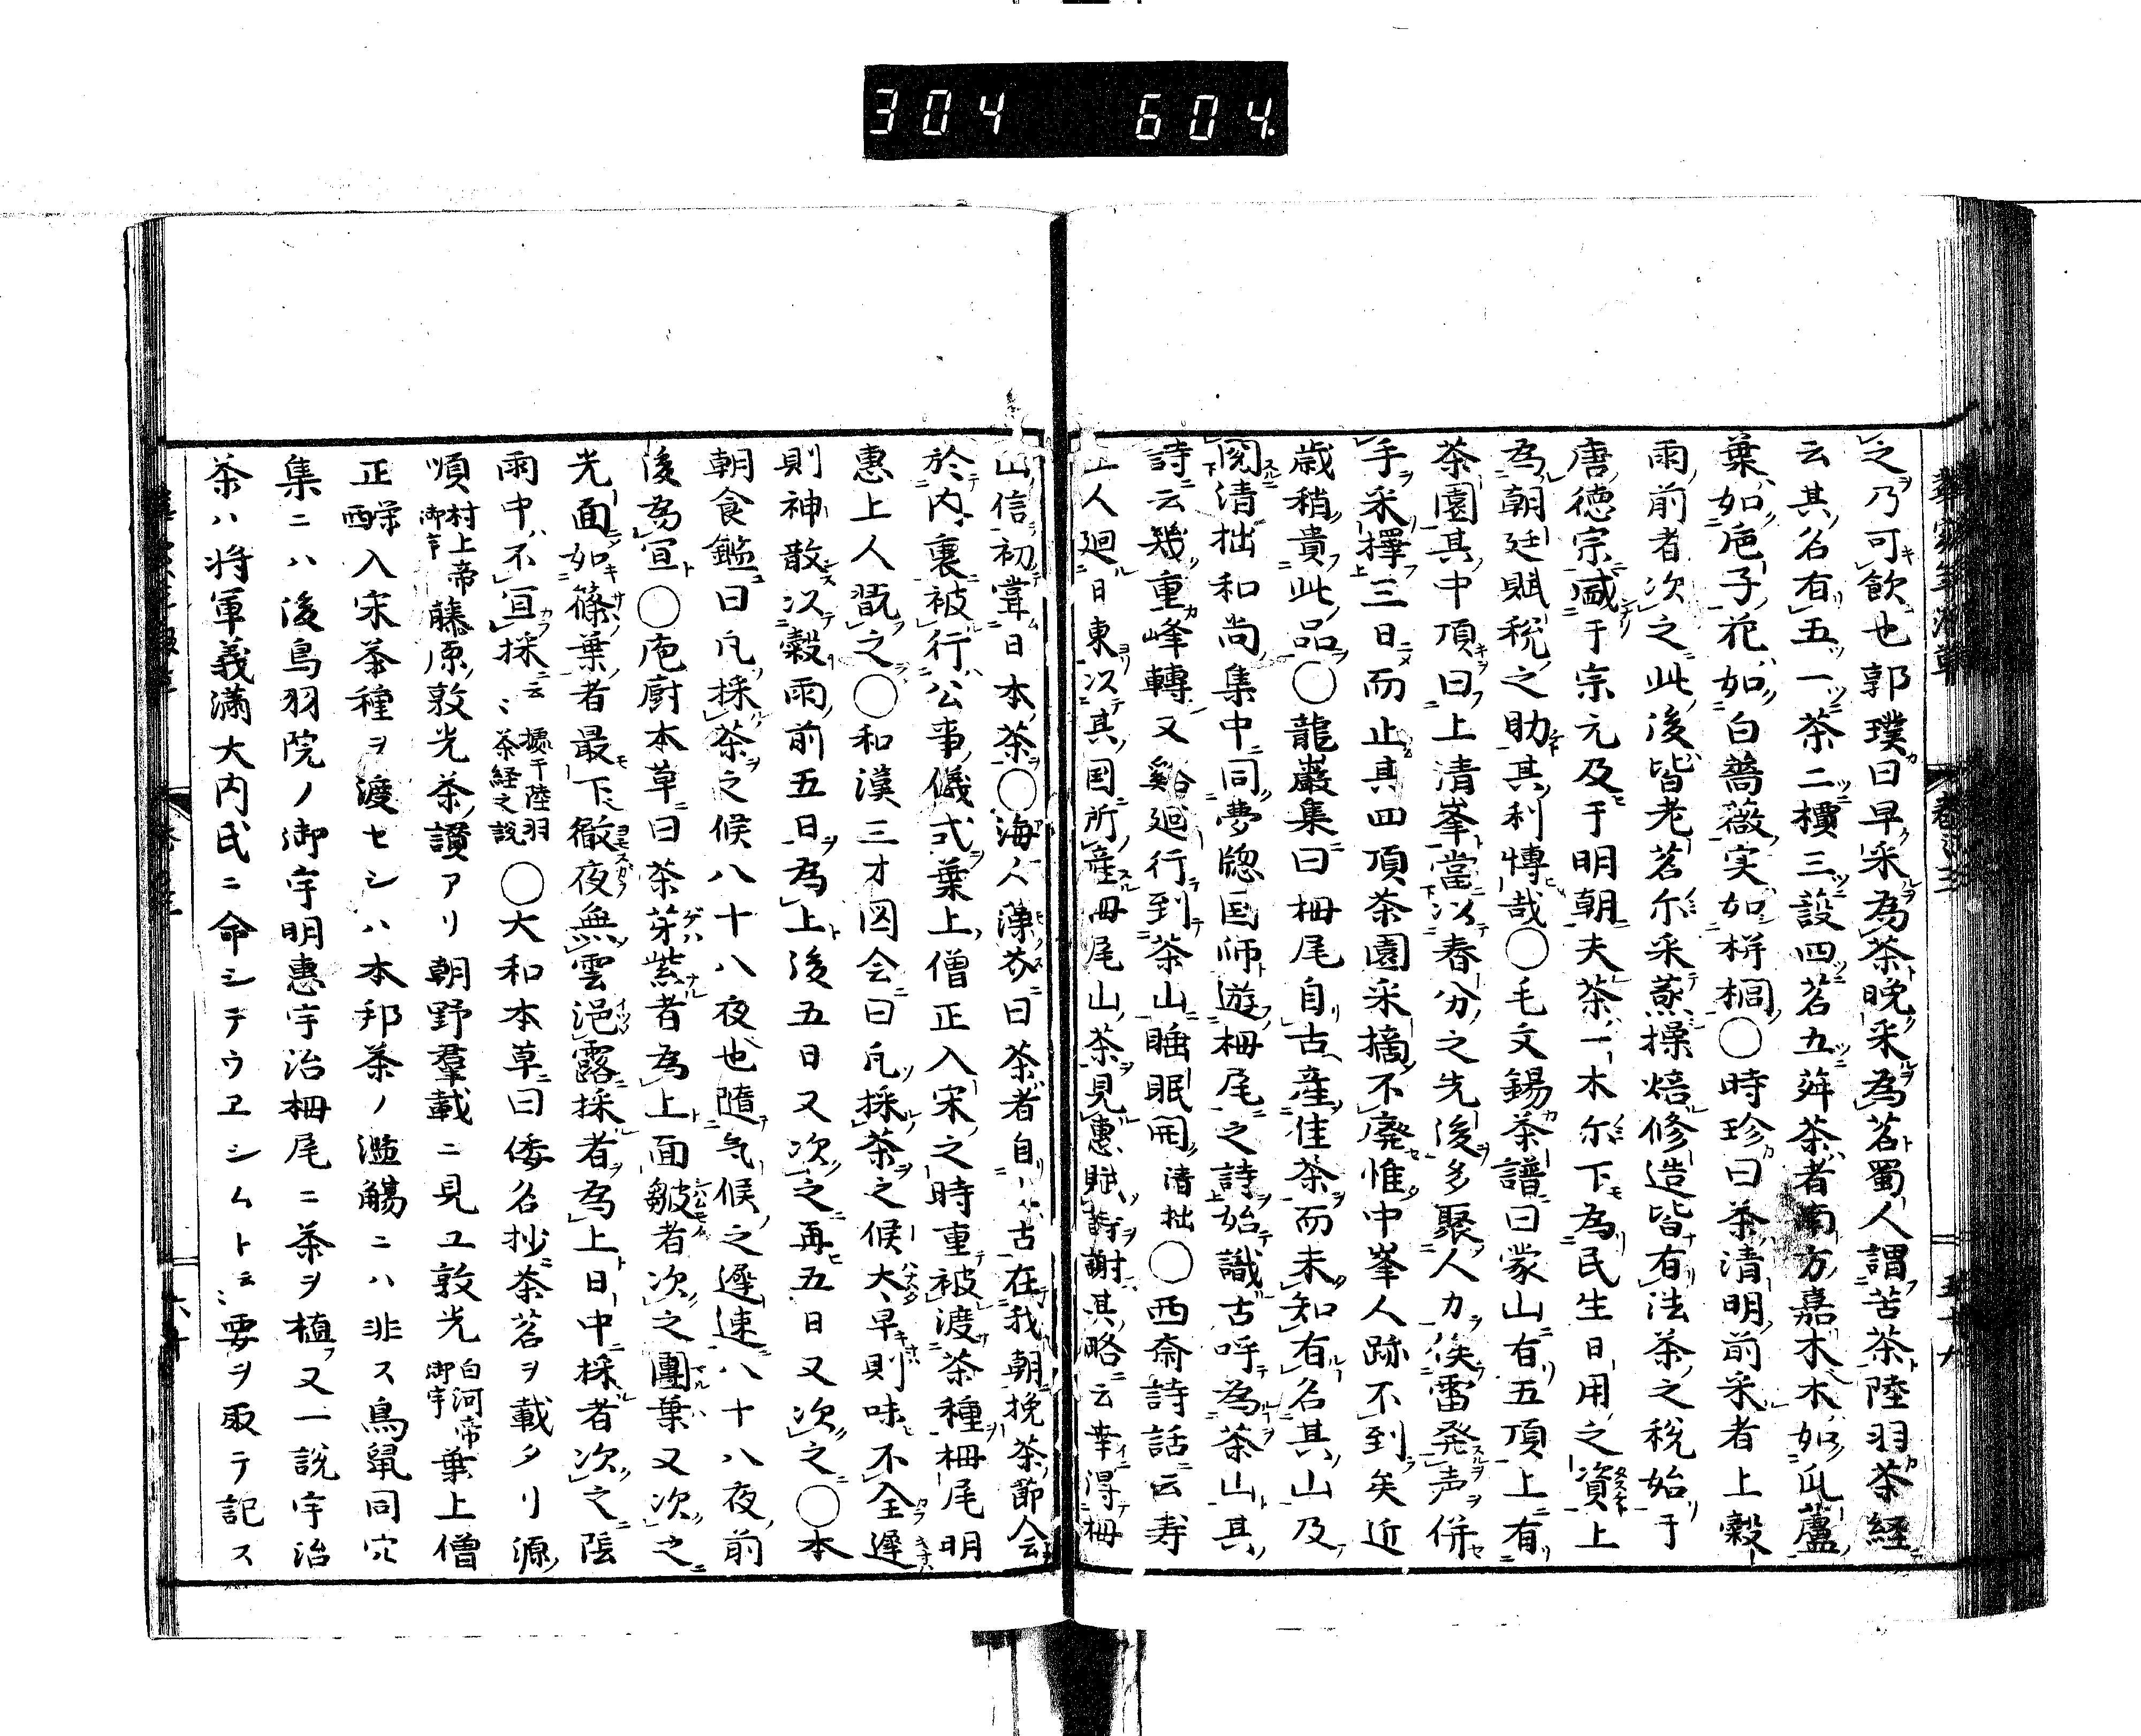 304 604.
之乃可飲也郭璞曰早采為茶晩采為茗蜀人謂苦茶陸羽茶経
云其名有五一茶二檟三設四茗五荈茶者南方嘉木木如瓜蘆
葉如巵子花如白薔薇実如栟櫚〇時珍曰茶清明前采者上穀
雨前者次之此後皆老茗尓采蒸操焙修造皆有法茶之税始于
唐徳宗盛于宗元及于明朝夫茶一木尓下為民生日用之資上
為朝廷賦税之助其利博哉〇毛文錫茶譜曰蒙山有五頂上有
茶園其中頂曰上清峯當以春分之先後多聚人力俟雷発声併
手采擇三日而止其四頂茶園采摘不廃惟中峯人跡不到矣近
歳稍貴此品〇龍巌集曰栂尾自古産佳茶而未知有名其山及
閲清拙和尚集中同夢窓国师遊栂尾之詩始識古呼為茶山其
詩云幾重峰轉又谿廻行到茶山睡眠開清拙〇西斎詩話云寿
上人廻日東以其国所産栂尾山茶見惠賦詩謝其略云幸得栂
山信初嘗日本茶〇海人藻芥曰茶者自古在我朝挽茶節会
於内裏被行公事儀式葉上僧正入宋之時重被渡茶種栂尾明
惠上人翫之〇和漢三才図会曰凡採茶之候大早則味不全遲
則神散以穀雨前五日為上後五日又次之再五日又次之〇本
朝食鑑曰凡採茶之候八十八夜也隨気候之遲速八十八夜前
後為宜〇庖廚本草曰茶芽紫者為上面皺者次之團葉又次之
光面如篠葉者最下徹夜無雲浥露採者為上日中採者次之陰
雨中不宜採云々據于陸羽茶経之説〇大和本草曰倭名抄茶茗ヲ載タリ源
順村上帝御宇藤原敦光茶讃アリ朝野羣載ニ見ユ敦光白河帝御宇葉上僧
正栄西入宋茶種ヲ渡セシハ本邦茶ノ濫觴ニハ非ス鳥鼠同穴
集ニハ後鳥羽院ノ御宇明惠宇治栂尾ニ茶ヲ植又一説宇治
茶ハ将軍義満大内氏ニ命シテウヱシムト云々要ヲ取テ記ス